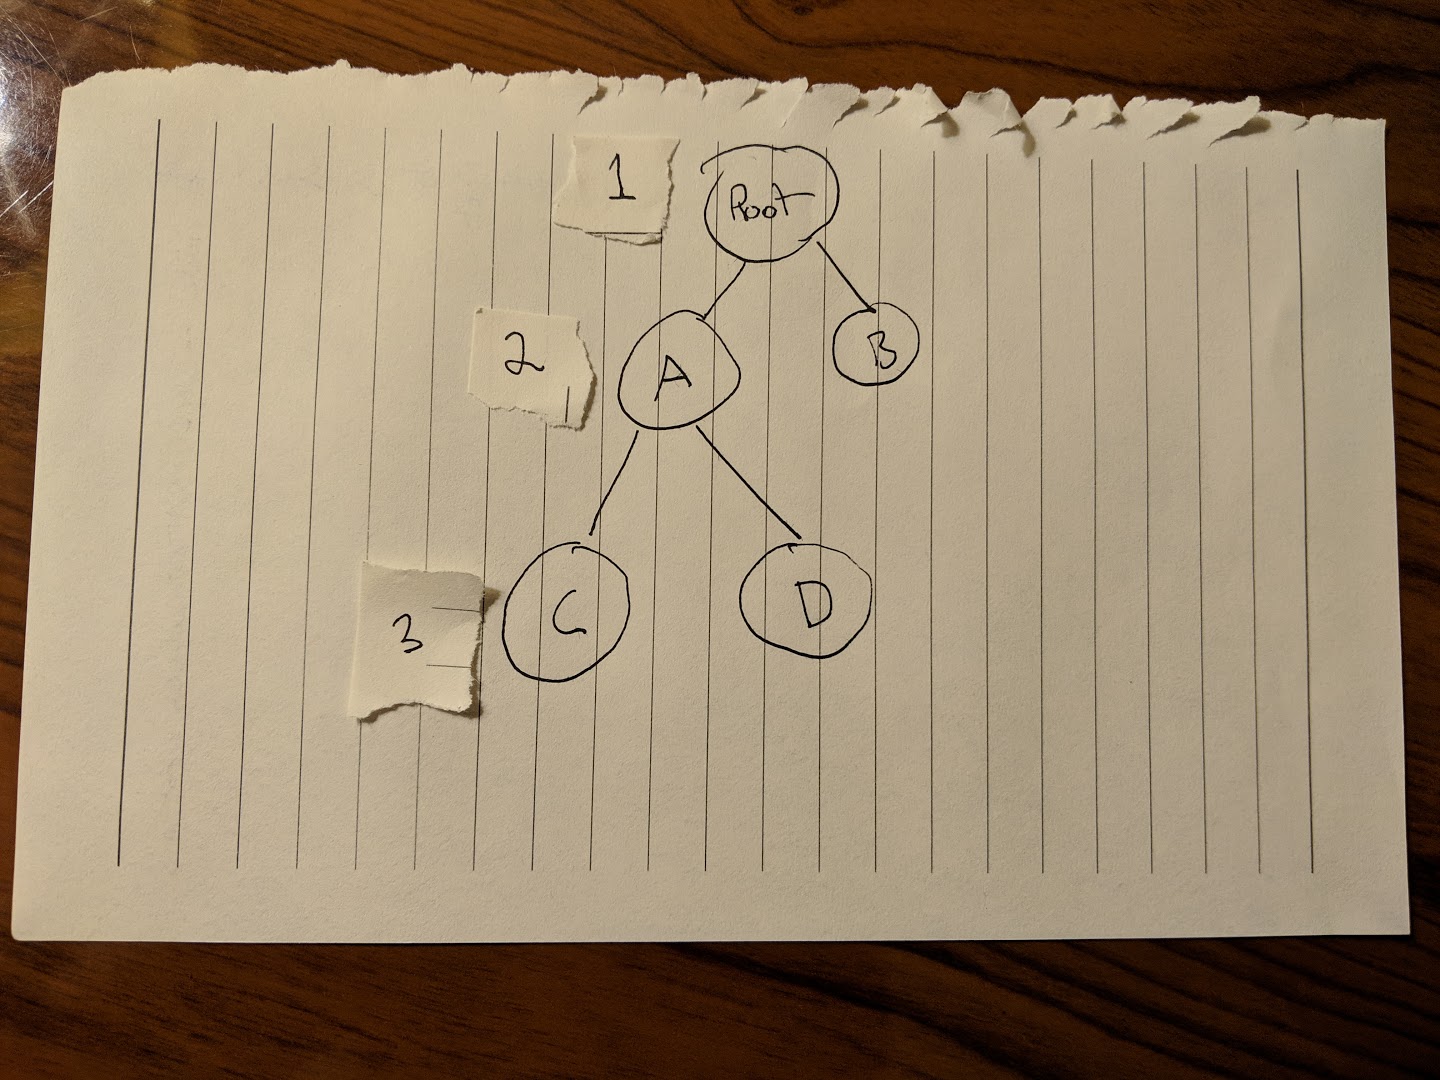 1
Root
2
A
B
3
C
D